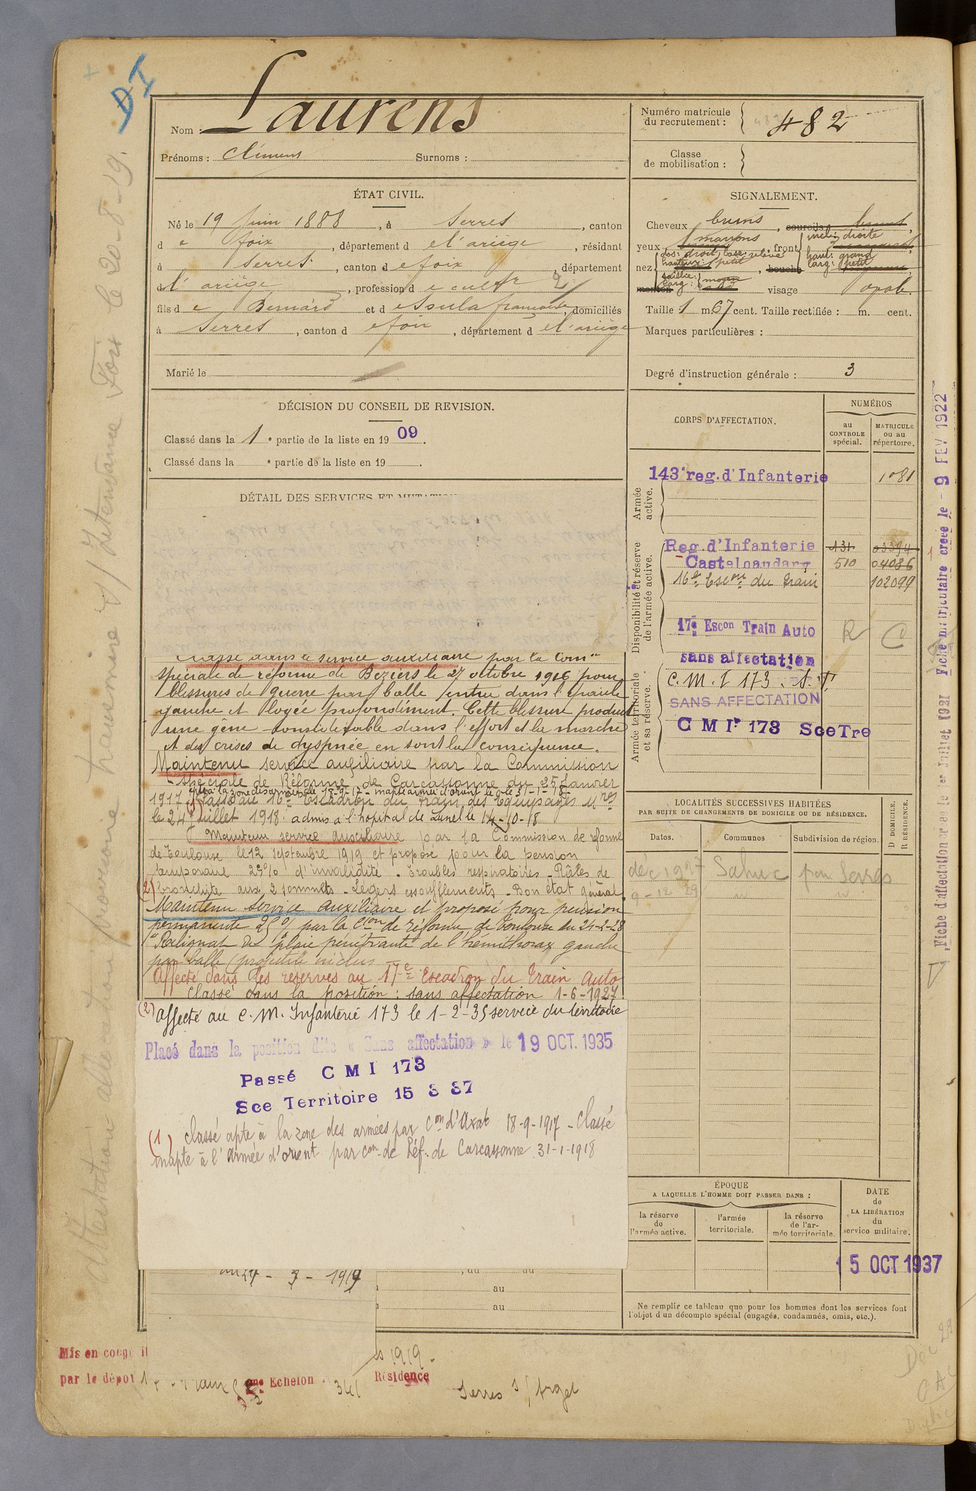 DI
Nom : Laurens
Prénoms : Clément Surnoms :
Numéro matricule du recrutement : 482
Classe de mobilisation :
ÉTAT CIVIL.
Né le 19 Juin 1888, à Serres, canton
de Foix, département de l'ariège, résidant
à Serres, canton de foix, département
de l'ariège, profession de cultr
fils de Bernard et de Soula françoise, domiciliés
à Serres, canton de foix, département de l'ariège
Marié le
SIGNALEMENT.
Cheveux bruns, sourcils bruns
yeux marrons, front incli: droite
haut: grand
larg: petit
nez dos: droit, base relevé
hauteur: petit
saillie
larg: moyen
bouche
menton visage oval
Taille 1 m. 67 cent. Taille rectifiée : m. cent.
Marques particulières :
Degré d'instruction générale : 3
DÉCISION DU CONSEIL DE REVISION.
Classé dans la 1e partie de la liste en 1909.
Classé dans la e partie de la liste en 19
DÉTAIL DES SERVICES ET MUTATIONS
CORPS D'AFFECTATION.
NUMÉROS
au CONTROLE spécial.
MATRICULE ou au répertoire.
Armée active.
143e reg. d'Infanterie 1081
Disponibilité et réserve de l'armée active.
Reg. d'Infanterie 131
Castelnaudary 510 04086
16e Escon du Train 102099
17e Escon Train Auto R C
sans affectation
Armée territoriale et sa réserve.
C.M.I 173 S.T.
SANS AFFECTATION
C M Ie 173 Sce Tre
Classé dans le service auxiliaire par la Comon
spéciale de réforme de Béziers le 27 octobre 1916 pour
blessures de guerre par balle entrée dans l'épaule
gauche et logée profondément. Cette blessure produit
une gêne considérable dans l'effort et la marche
et des crises de dyspnée en sont la conséquence.
Maintenu service auxiliaire par la Commission
spéciale de Réforme de Carcassonne du 25 Janvier
1917 (1) Passé au 16e Escadron du Train des Equipages Mres
le 24 Juillet 1918. admis à l'hopital de Lunel le 14-10-18
Maintenu service auxiliaire par la Commission de réforme
de Toulouse le 12 septembre 1919 et proposé pour la pension
temporaire 25% d'invalidité - Troubles respiratoires - Râles de
(2) bronchite aux 2 sommets - Légers essoufflements - Bon état général
Maintenu service auxiliaire et proposé pour pension
permanente 25% par la Con de réforme de Toulouse du
Reliquat de plaie pénétrante de l'hémithorax gauche
par balle (projectile inclus
Affecté dans les réserves au 17e Escadron du Train Auto
Classé dans la position : sans affectation 1-6-1927
(2) affecté au C.M. Infanterie 173 le 1-2-35 service du territoire
Placé dans la position dite « Sans affectation » le 19 OCT. 1935
Passé C M I 173
Sce Territoire 15 3 37
(1) Classé apte à la zone des armées par Con d'Axat 18-9-1917 - Classé
inapte à l'Armée d'orient par con de Réf. de Carcassonne 31-1-1918
LOCALITÉS SUCCESSIVES HABITÉES
PAR SUITE DE CHANGEMENTS DE DOMICILE OU DE RÉSIDENCE.
Dates. Communes Subdivision de région. D DOMICILE. R RÉSIDENCE.
déc 1927 Sahuc par Serres
9-12-29 " "
ÉPOQUE
A LAQUELLE L'HOMME DOIT PASSER DANS :
la réserve de l'armée active.
l'armée territoriale.
la réserve de l'armée territoriale.
DATE de LA LIBÉRATION du service militaire.
15 OCT 1937
Ne remplir ce tableau que pour les hommes dont les services font
l'objet d'un décompte spécial (engagés, condamnés, omis, etc.).
au 27 - 3 - 1919
, au au
au
au
Mis en congé il 1919
par le dépôt Train Echelon 341 Résidence Serres s/ Arget
Fiche d'affectation créée le 1er Juillet 1921 Fiche matriculaire créée le 9 FEV 1922